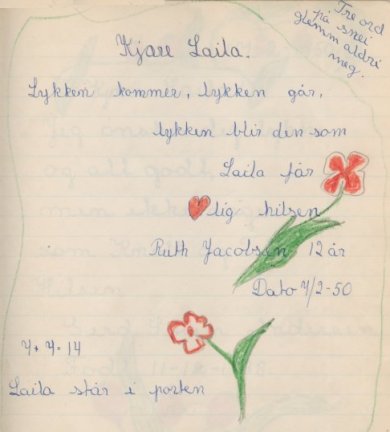 Tre ord
på snei
glemm aldri
meg.
Kjære Laila.
Lykken kommer, lykken går,
lykken blir den som
Laila får
lig hilsen
Ruth Jacobsen 12 år
Dato 7/2-50
7+7=14
Laila står i porten